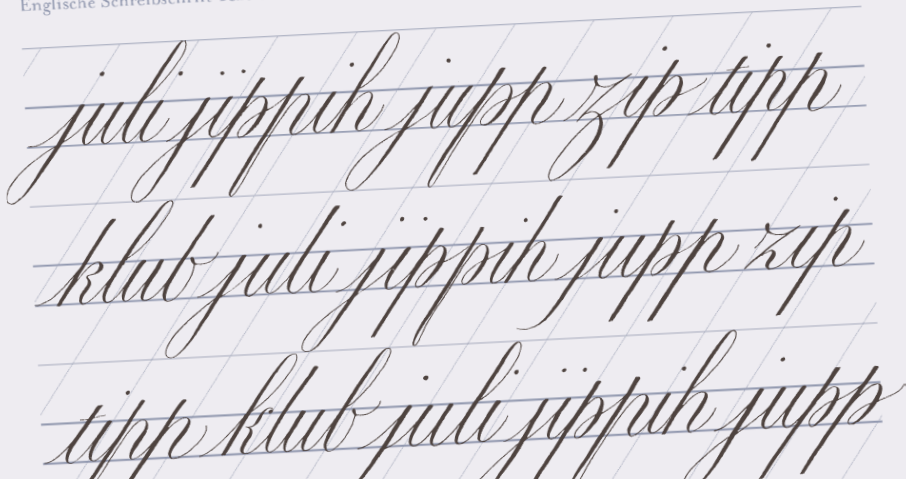 Englische Schreibschrift
juli jippih jupp zip tipp
klub juli jippih jupp zip
tipp klub juli jippih jupp